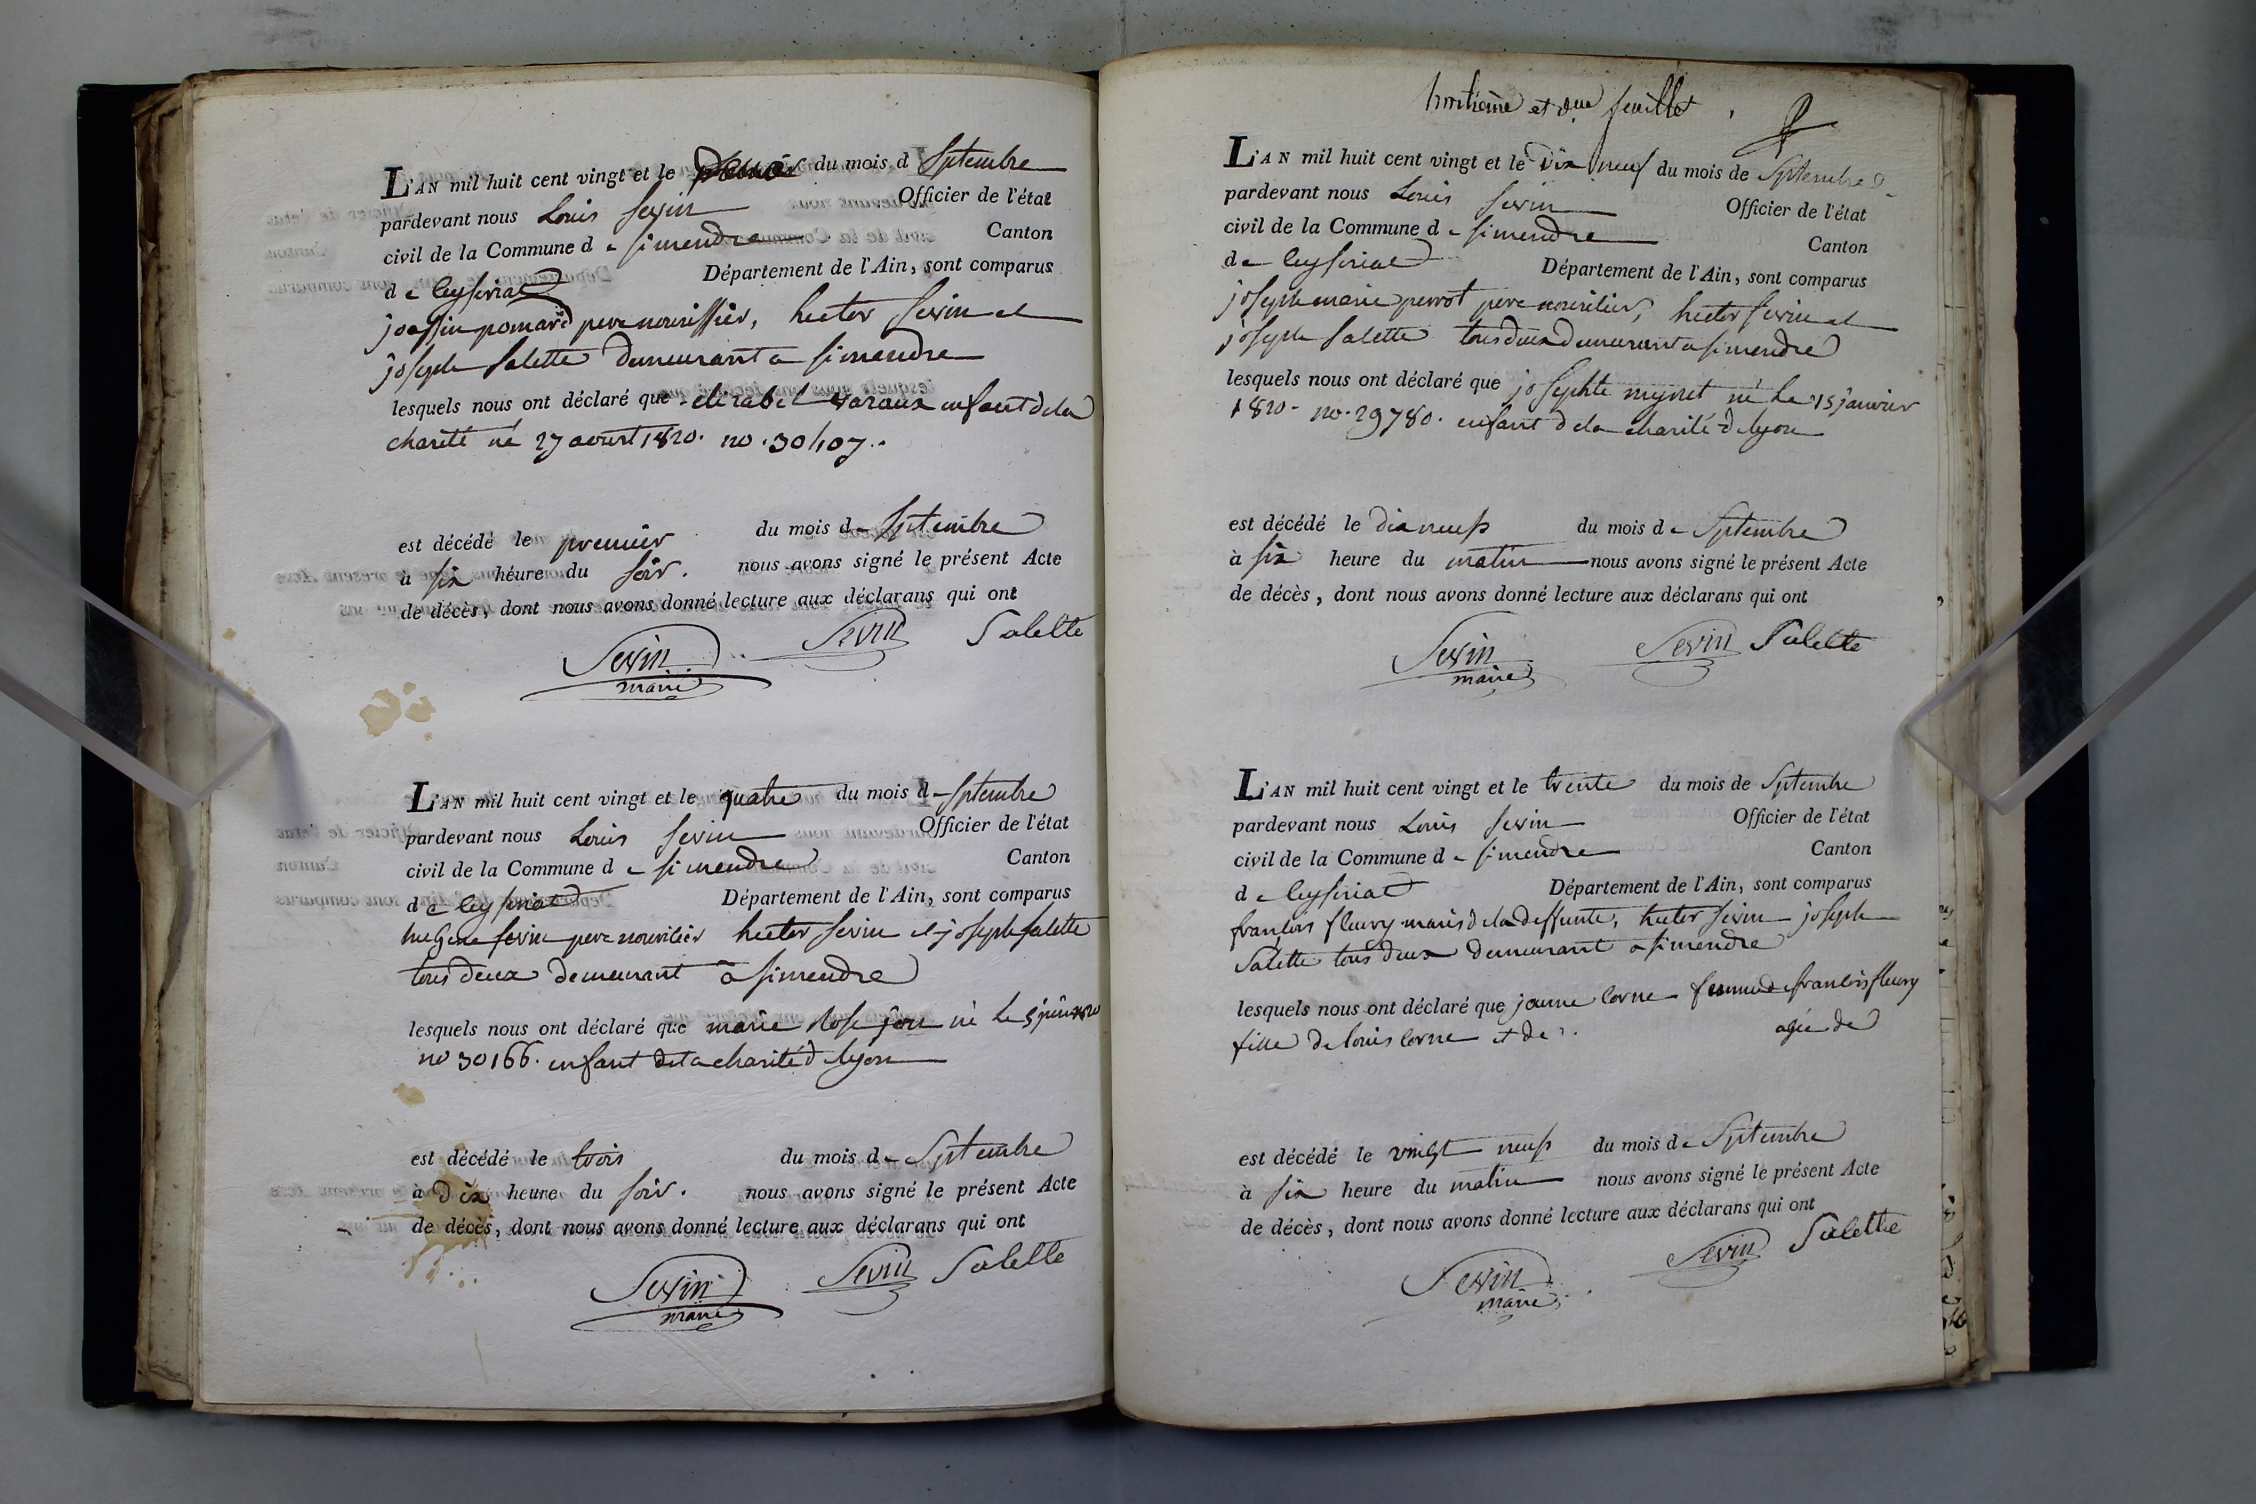 L'AN mil huit cent vingt et le du mois d Septembre
pardevant nous Louis sevin Officier de l'état
civil de la Commune d e simendre Canton
d e Ceyseriat Département de l'Ain, sont comparus
pere nourissier, hector sevin et
joseph salette demeurant a simendre
lesquels nous ont déclaré que varaux enfant de la
charité né 27 aoust 1820. no. 30407.
est décédé le premier du mois de Septembre
à six héure du soir. nous avons signé le présent Acte
de décès, dont nous avons donné lecture aux déclarans qui ont
Sevin Sevin Salette
maire
L'AN mil huit cent vingt et le quatre du mois de Septembre
pardevant nous Louis sevin Officier de l'état
civil de la Commune d e simendre Canton
d e Ceyseriat Département de l'Ain, sont comparus
sevin pere nouricier hector sevin et joseph salette
tous deux demeurant a simendre
lesquels nous ont déclaré que marie Rose né le 5 juin 1820
no 30166. enfant de la charité d lyon
est décédé le trois du mois de Septembre
à Dix heure du soir. nous avons signé le présent Acte
de décès, dont nous avons donné lecture aux déclarans qui ont
Sevin Sevin Salette
maire
huitieme et feuillet
L'AN mil huit cent vingt et le Dix neuf du mois de Septembre
pardevant nous Louis sevin Officier de l'état
civil de la Commune d e simendre Canton
de Ceyseriat Département de l'Ain, sont comparus
joseph marie perrot pere nouricier, hector sevin et
joseph salette tous deux demeurant a simendre
lesquels nous ont déclaré que josephte né le 15 janvier
1820. no. 29780. enfant de la charité d lyon
est décédé le dix neuf du mois de Septembre
à six heure du matin nous avons signé le présent Acte
de décès, dont nous avons donné lecture aux déclarans qui ont
Sevin Sevin Salette
maire
L'AN mil huit cent vingt et le trente du mois de Septembre
pardevant nous Louis sevin Officier de l'état
civil de la Commune d e simendre Canton
d e Ceyseriat Département de l'Ain, sont comparus
françois fleury maris de la deffunte, hector sevin joseph
Salette tous deux demeurant a simendre
lesquels nous ont déclaré que jeanne Corne femme de francois fleury
fille de louis Corne et de agée de
est décédé le vingt neuf du mois de Septembre
à six heure du matin nous avons signé le présent Acte
de décès, dont nous avons donné lecture aux déclarans qui ont
Sevin Sevin Salette
maire